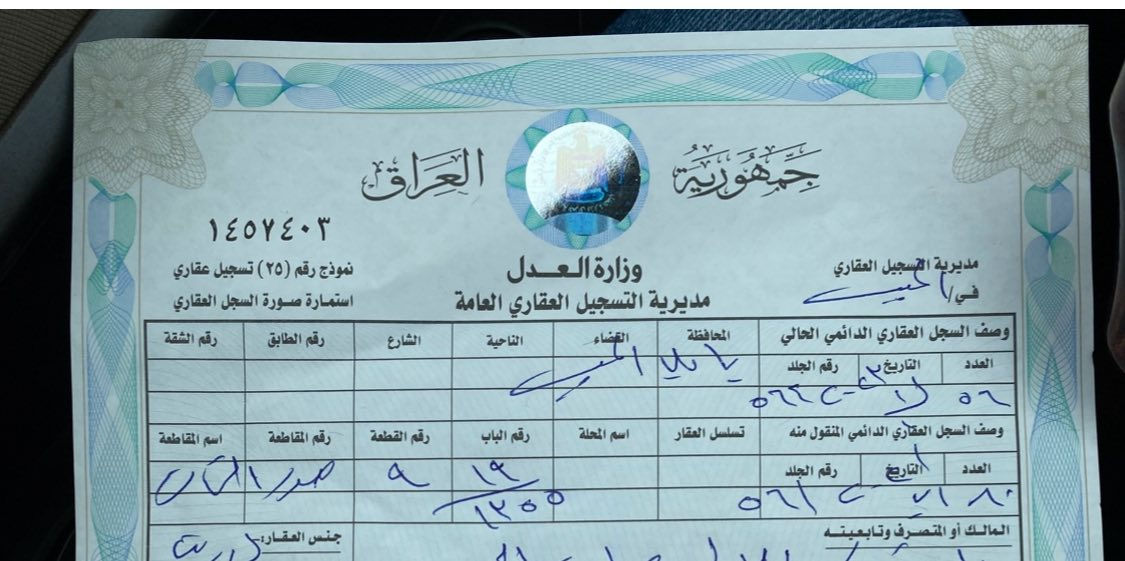 جمهورية العراق
١٤٥٧٤٠٣
وزارة العدل
مديرية التسجيل العقاري العامة
مديرية التسجيل العقاري
في/ المسيب
نموذج رقم (٢٥) تسجيل عقاري
استمارة صورة السجل العقاري
وصف السجل العقاري الدائمي الحالي المحافظة القضاء الناحية الشارع رقم الطابق رقم الشقة
العدد التاريخ رقم الجلد بابل المسيب
٥٦
وصف السجل العقاري الدائمي المنقول منه تسلسل العقار اسم المحلة رقم الباب رقم القطعة رقم المقاطعة اسم المقاطعة
العدد التاريخ رقم الجلد ١٩ ٩
٥٦١ ١٣٥٥
المالك أو المتصرف وتابعيته جنس العقار: